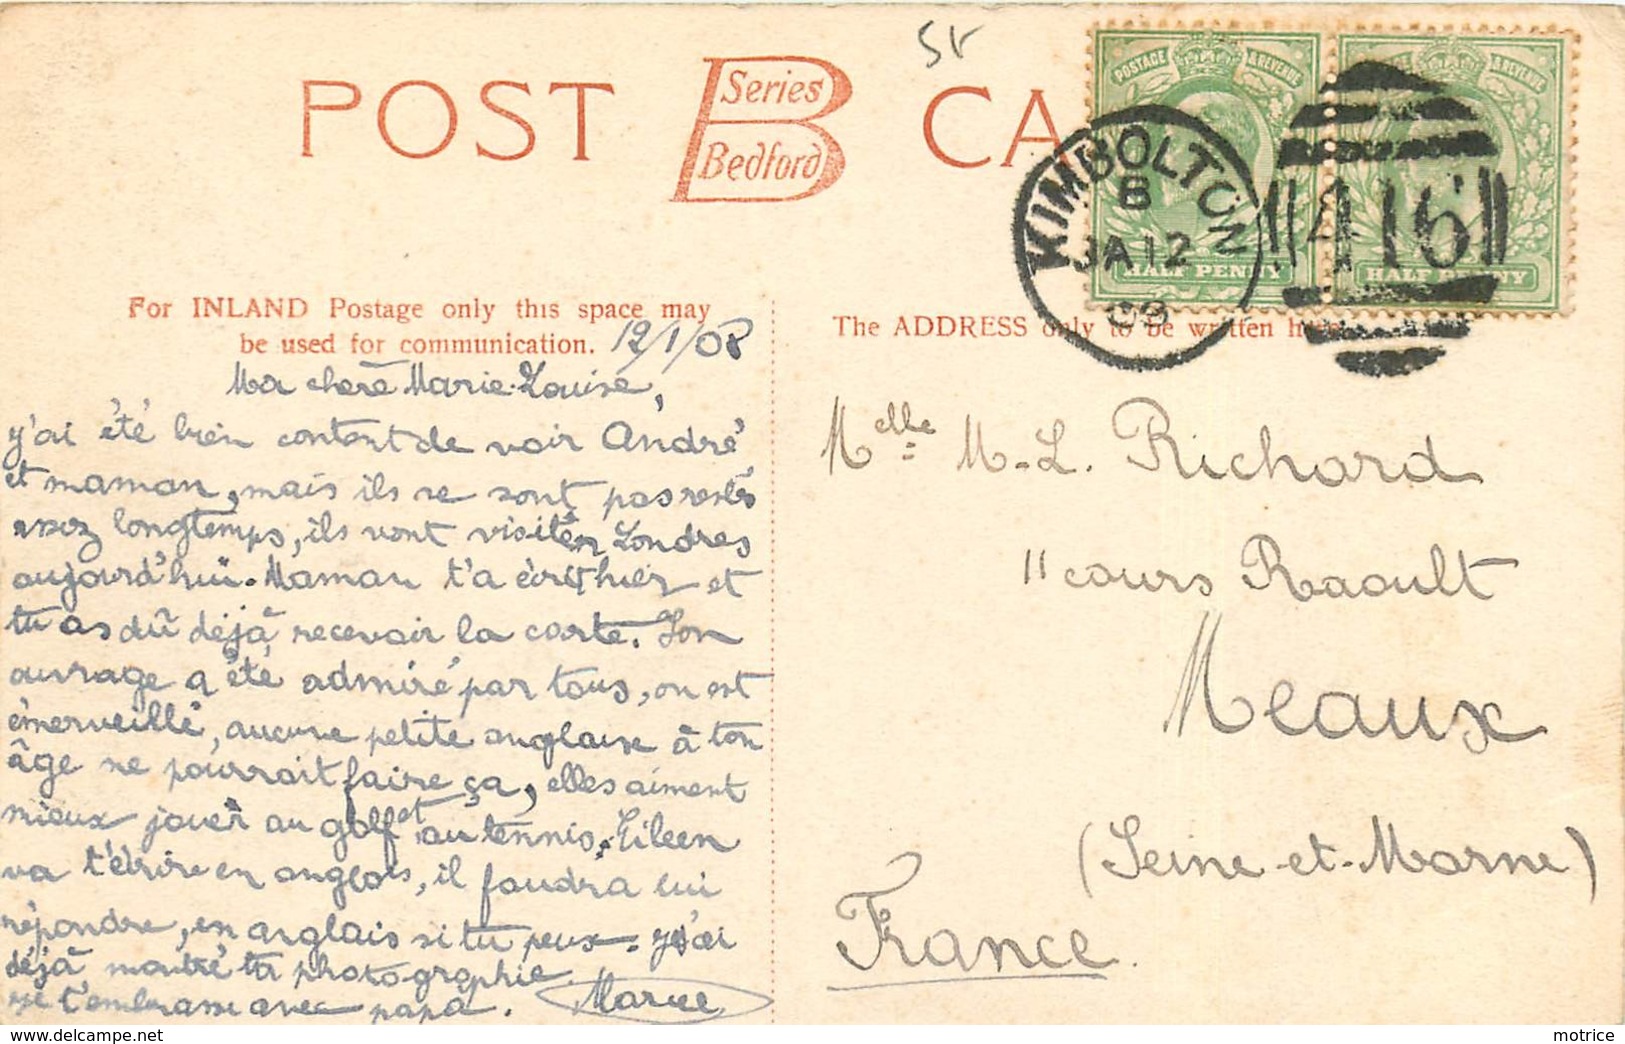 St
POST Series B Bedford CA
POSTAGE & REVENUE
POSTAGE & REVENUE
KIMBOLTON
B
JA 12
09
416
HALF PENNY
HALF PENNY
For INLAND Postage only this space may
be used for communication. 12/1/08
The ADDRESS only to be written h
Ma chère Marie-Louise,
j'ai été bien content de voir André
et maman, mais ils ne sont pas restés
assez longtemps, ils vont visiter Londres
aujourd'hui. Maman t'a écrit hier et
tu as dû déjà recevoir la carte. Ton
ouvrage a été admiré par tous, on est
émerveillé, aucune petite anglaise à ton
âge ne pourrait faire ça, elles aiment
mieux jouer au golf et au tennis. Eileen
va t'écrire en anglais, il faudra lui
répondre, en anglais si tu peux. j'ai
déjà montré ta photographie.
je t'embrasse avec papa. Marcel
Melle M-L. Richard
11 cours Raoult
Meaux
(Seine-et-Marne)
France.
motrice